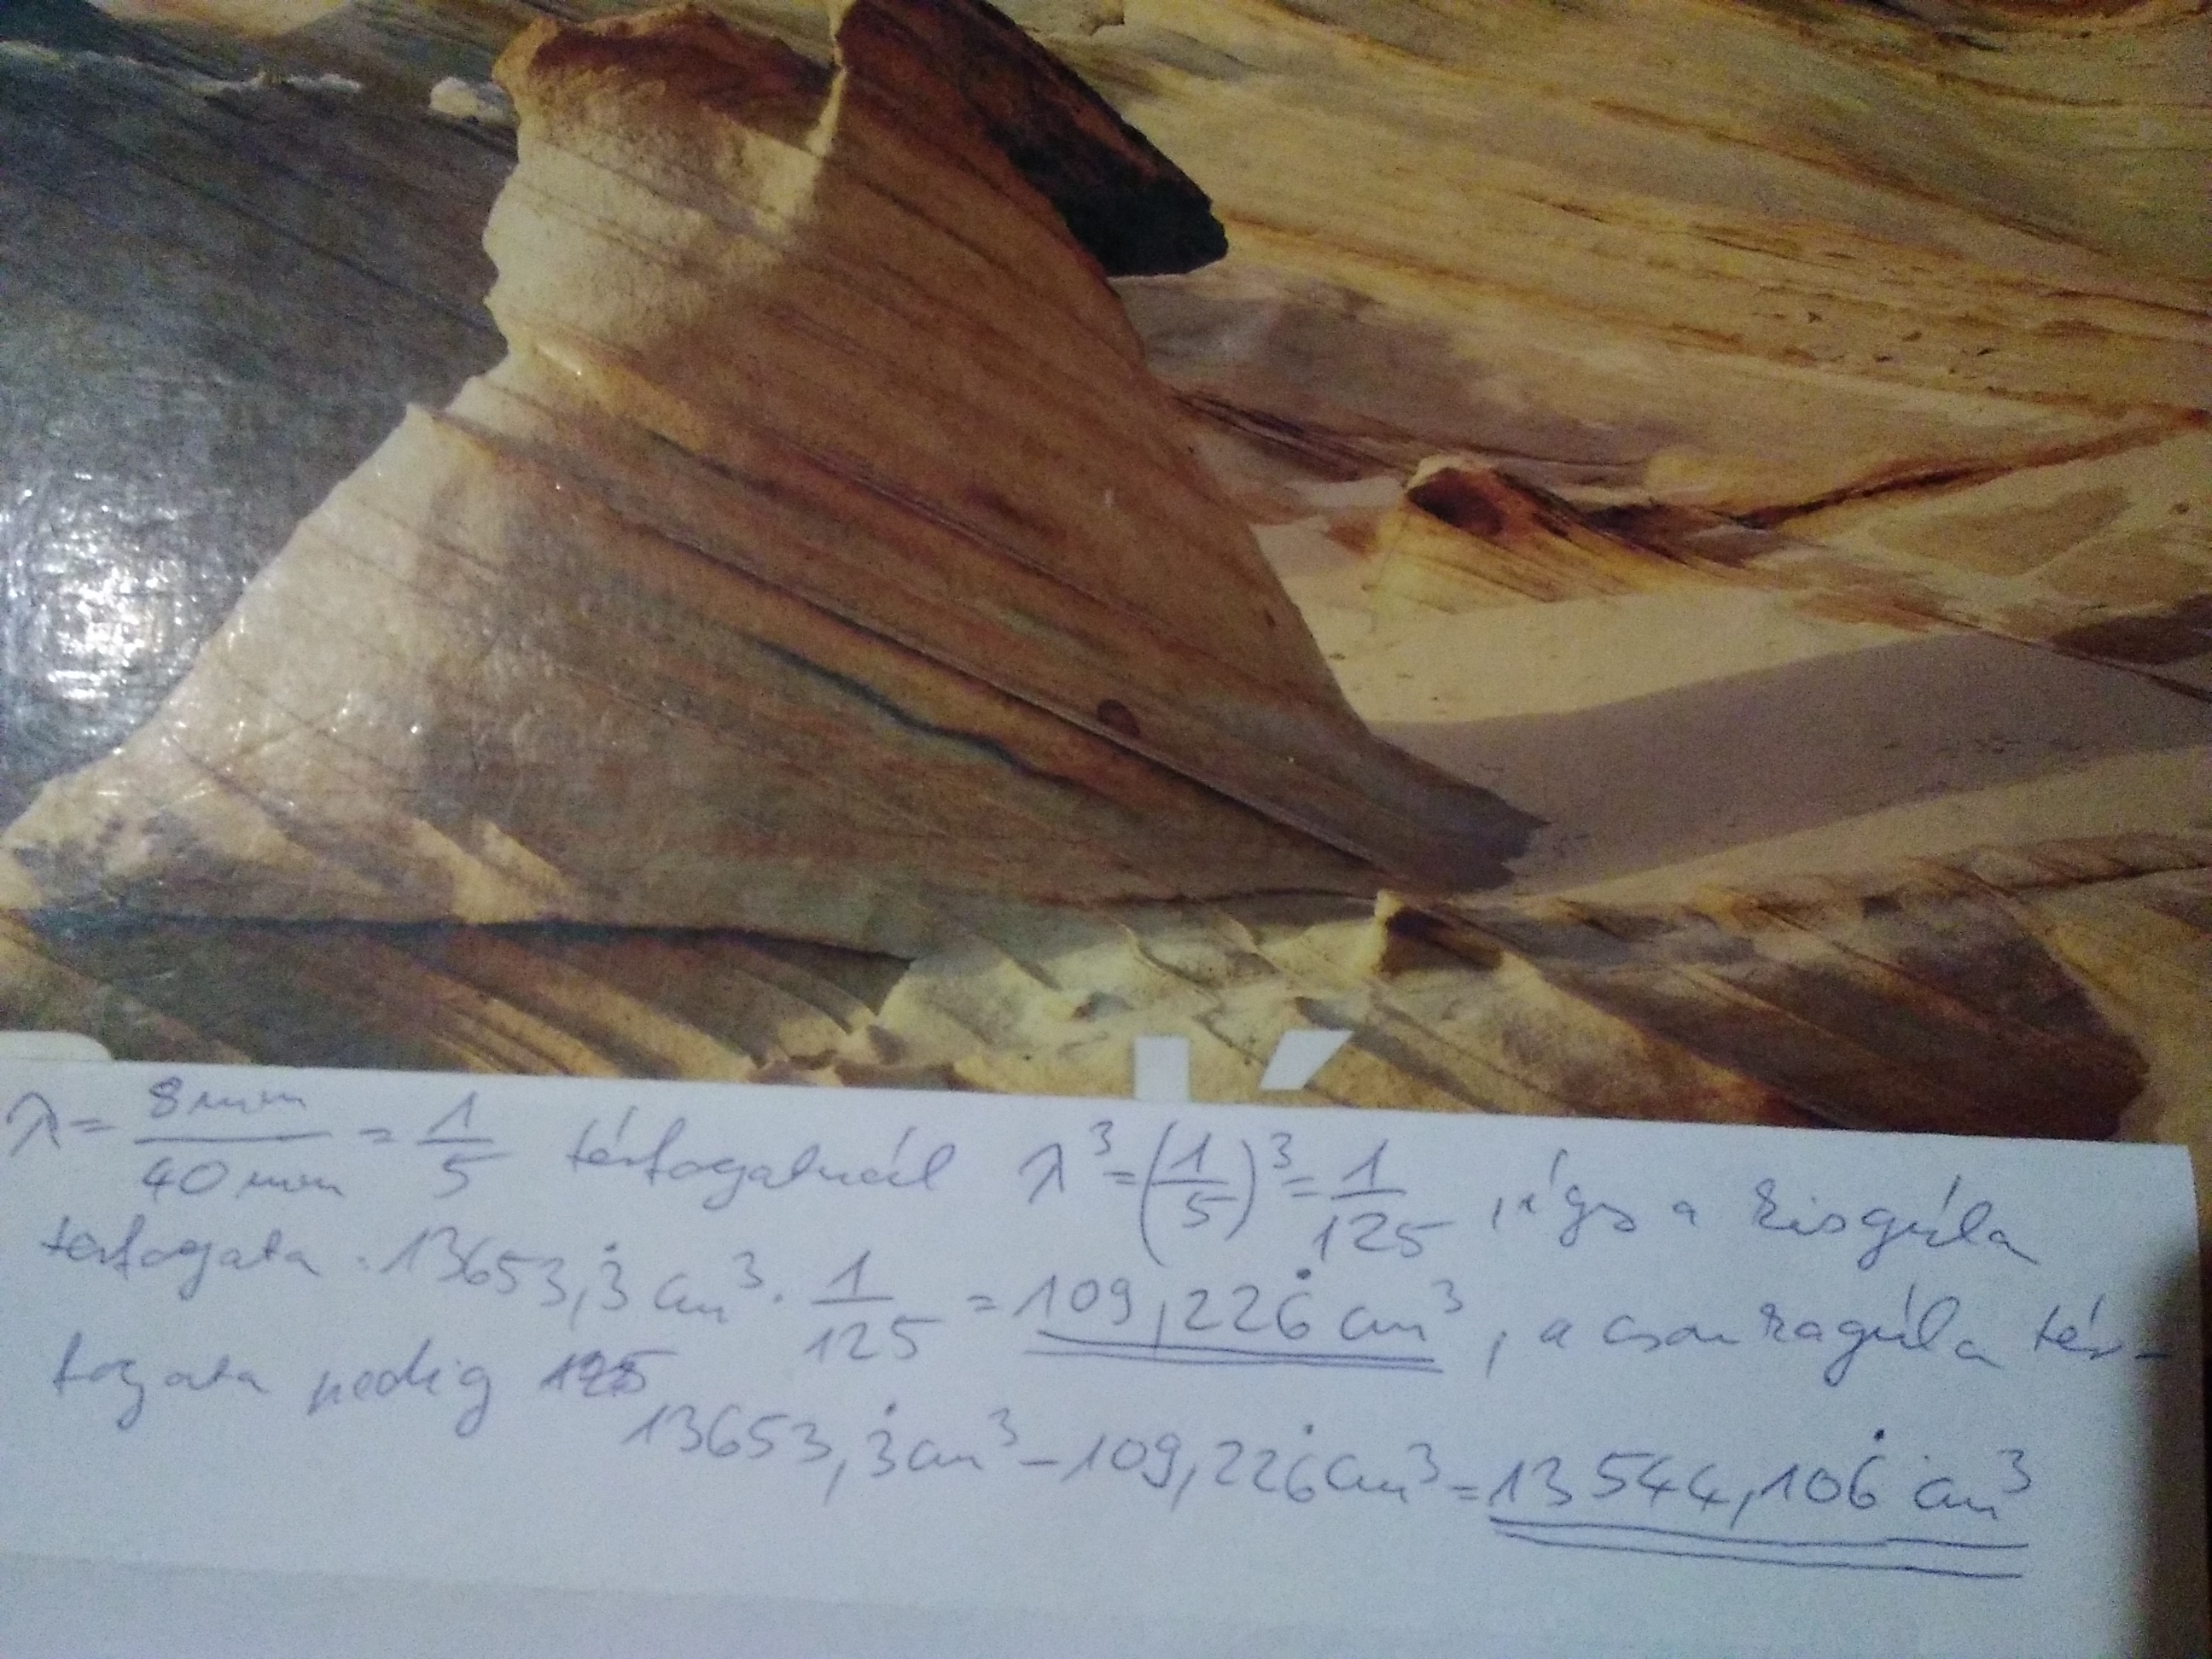 λ = 8mm/40mm = 1/5 térfogatnál λ³ = (1/5)³ = 1/125, így a kisgúla
térfogata 13653,3̇ cm³ · 1/125 = 109,226̇ cm³, a csonkagúla tér-
fogata pedig
13653,3̇ cm³ - 109,226̇ cm³ = 13544,106̇ cm³